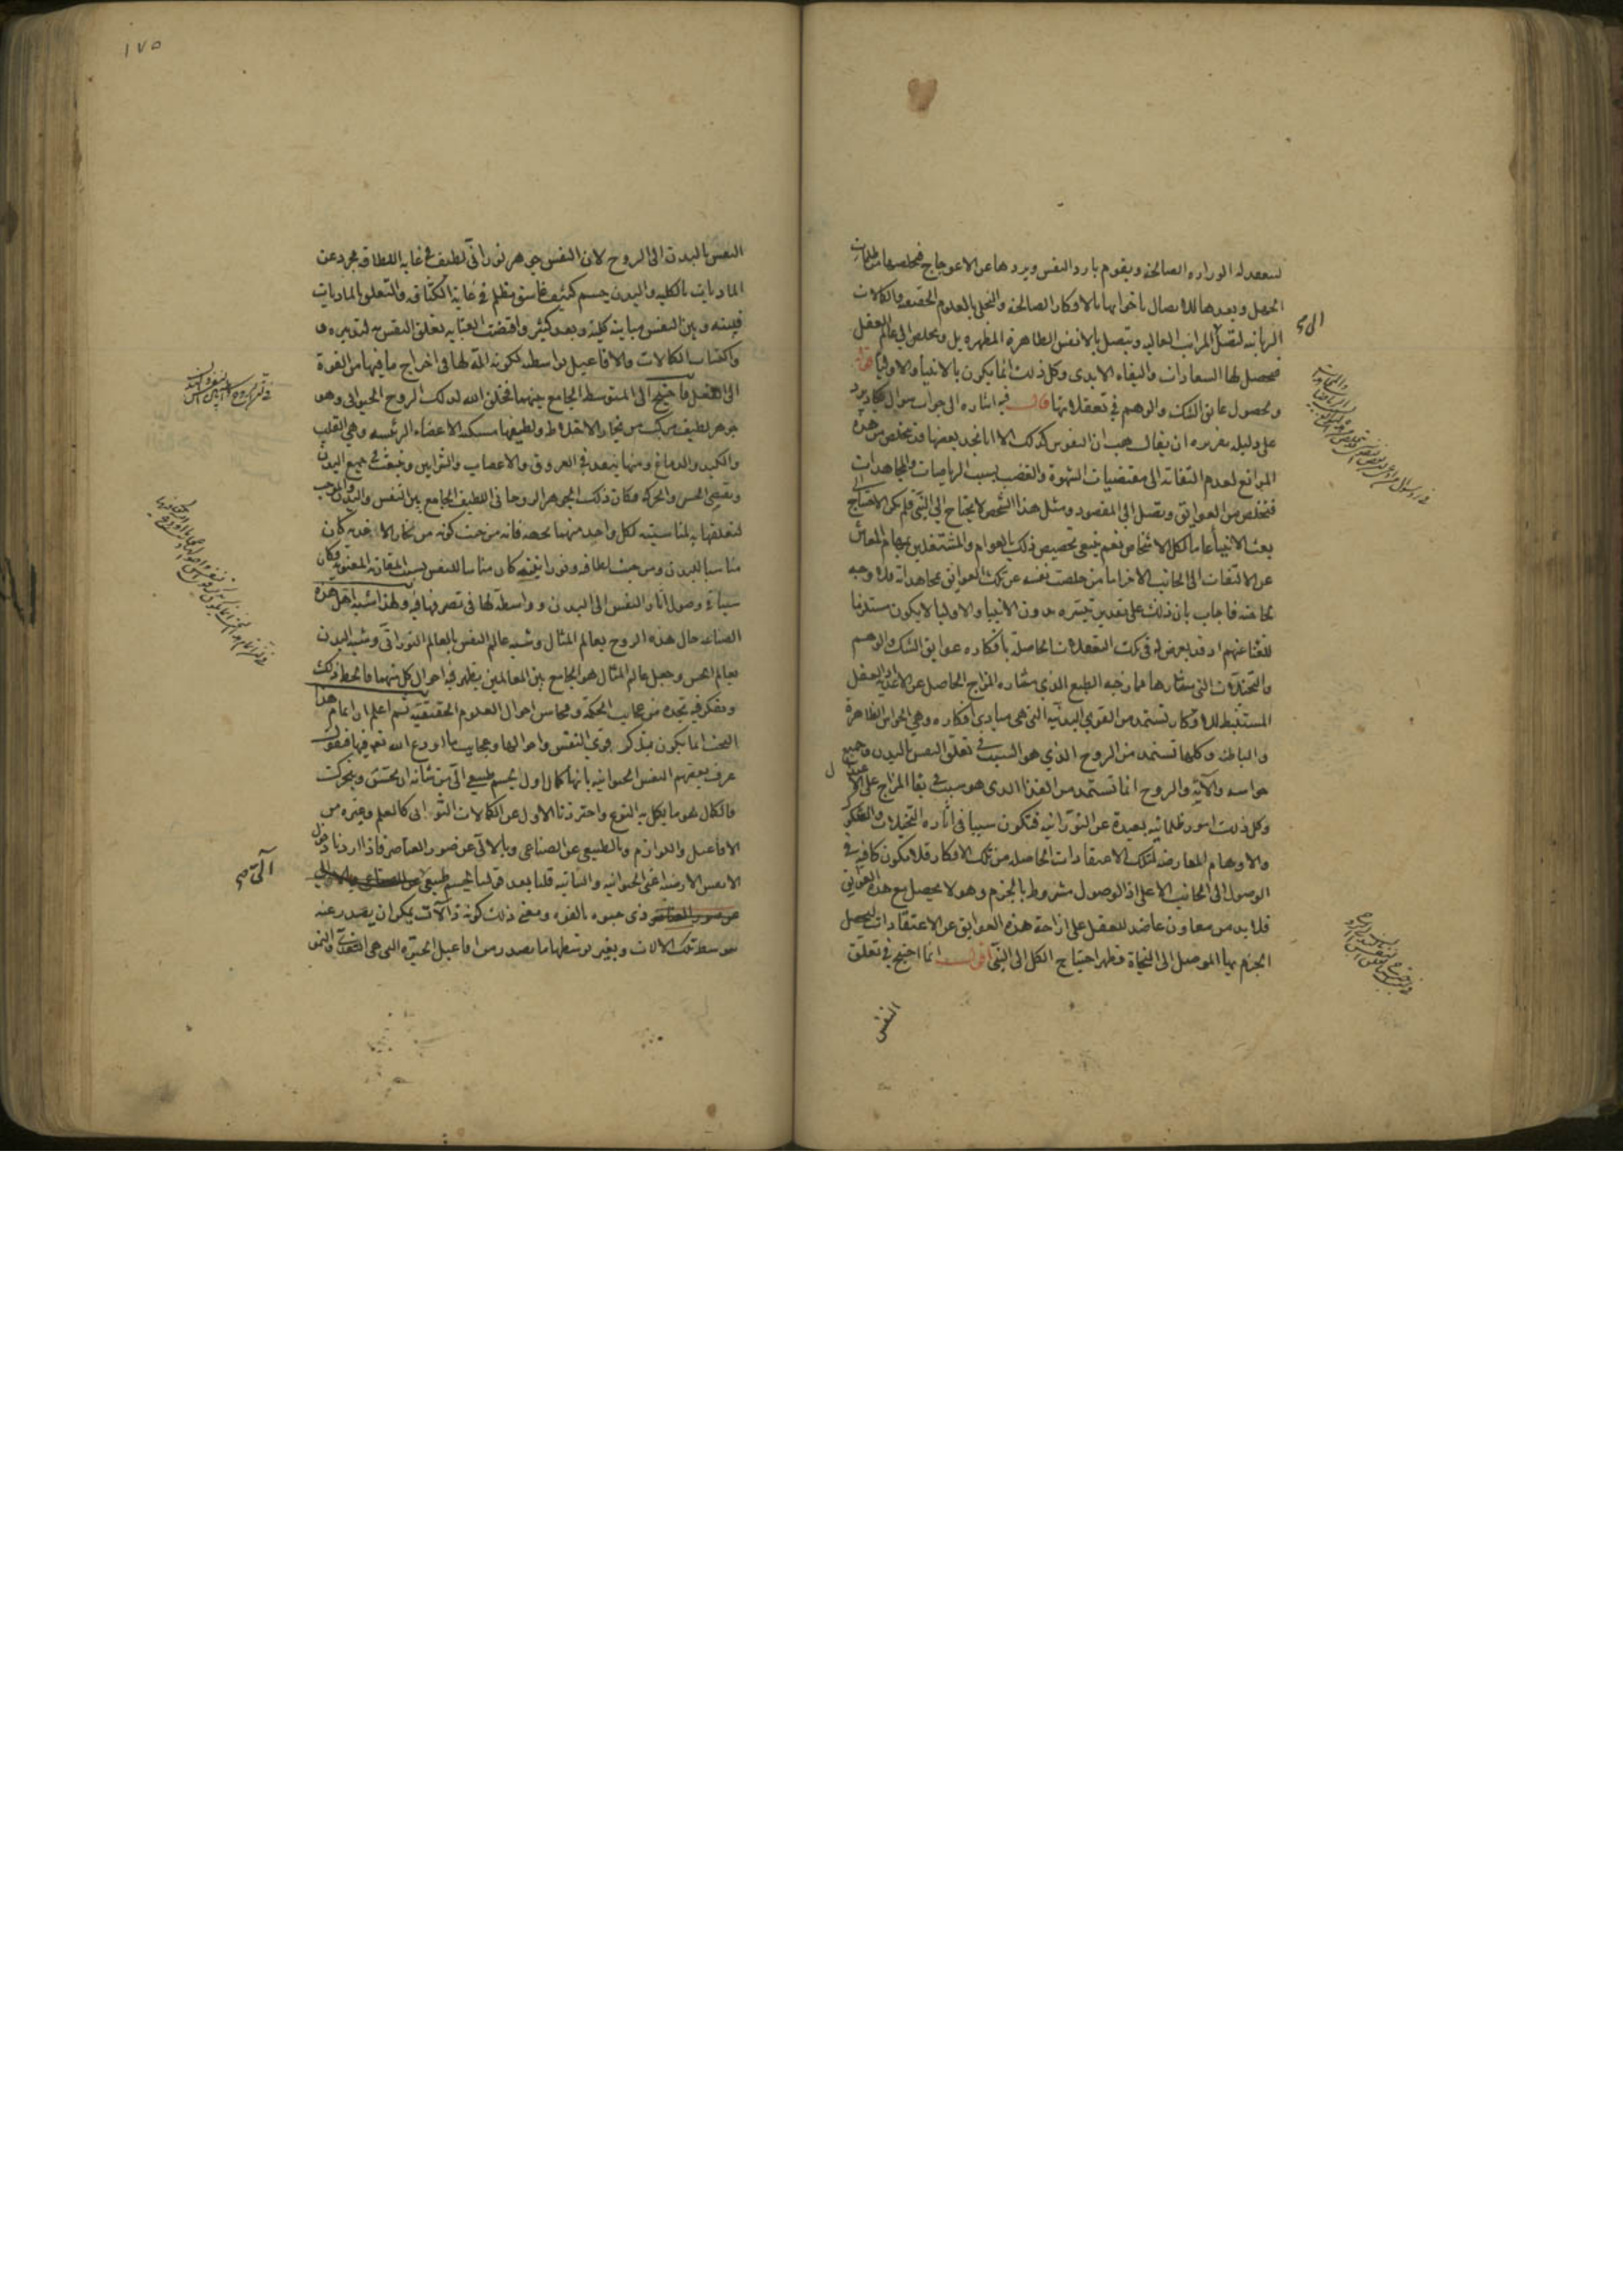 لتعقد له الوزارة الصالحة ويقوم بارد النفس ويردها عن الاعوجاج فيخلصها من ظلمات
الجهل ويعدها للاتصال باخواتها بالافكار الصالحة والتحلي بالعلوم الحقيقية والكمالات
الربانية لتصل المراتب العالية وتتصل بالانفس الطاهرة المطهرة بل وتخلص الى عالم العقل
فيحصل لها السعادات والبقاء الابدى وكل ذلك انما يكون بالانبياء والاولياء
وبحصول عايق الشك والوهم في تعقلاتها قال فيه اشارة الى جواب سوال يرد
على دليله تقريره ان يقال هب ان النفوس كذلك الا انا نجد بعضها قد تخلص من هذه
الموانع لعدم التفاته الى مقتضيات الشهوة والغضب بسبب الرياضات والمجاهدات
فتخلص من العوايق ويصل الى المقصود ومثل هذا الشخص لا يحتاج الى النبي فلم يكن الاحتياج الى
بعث الانبياء عاما لكل الاشخاص نعم ينبغي تخصيص ذلك بالعوام والمشتغلين بمهام المعاش
عن الالتفات الى الجانب الاخر اما من خلصت نفسه عن تلك العوايق بمجاهداته فلا وجه
لحاجته فاجاب بان ذلك على تقدير تيسره بدون الانبياء والاولياء لا يكون مستلزما
للغنا عنهم اذ قد يعرض له في تلك التعقلات الحاصلة بافكاره عوايق الشك والوهم
والتخيلات التي مثارها ممازجة الطبع الذي مثاره المزاج الحاصل عن الاغذية العقل
المستنبط للافكار تستمد من القوى البدنية التي هي مبادى افكاره وهي الحواس الظاهرة
والباطنة وكلها تستمد من الروح الذي هو السبب في تعلق النفس بالبدن وجميع
حواسه وآلاته والروح انما تستمد من الغذا الذى هو سبب في بقا المزاج على الاعتدال
وكل ذلك امور ظلمانية بعيدة عن النورانية فتكون سببا في اثارة التخيلات والشكوك
والاوهام المعارضة لتلك الاعتقادات الحاصلة من تلك الافكار فلا يكون كافية في
الوصول الى الجانب الاعلى اذ الوصول مشروط بالجزم وهو لا يحصل مع هذه العوايق
فلا بد من معاون عاضد للعقل على ازاحة هذه العوايق عن الاعتقادات ليحصل
الجزم بها الموصل الى النجاة فظهر احتياج الكل الى النبي اقول انما احتيج في تعلق
النفس
١٧٥
النفس بالبدن الى الروح لان النفس جوهر نوراني لطيف في غاية اللطافة مجرد عن
الماديات بالكلية والبدن جسم كثيف غاسق مظلم في غاية الكثافة والتعلق بالماديات
فبينه وبين النفس مباينة كلية وبعد كثير واقتضت العناية تعلق النفس به لتدبيره
واكتساب الكمالات والافاعيل بواسطته لكونه آلة لها في اخراج ما فيها من القوة
الى الفعل فاحتيج الى المتوسط الجامع بينهما فخلق الله لذلك الروح الحيوانى وهو
جوهر لطيف مركب من بخار الاخلاط ولطيفها مسكنه الاعضاء الرئيسه وهي القلب
والكبد والدماغ ومنها ينفذ في العروق والاعصاب والشرايين وينبعث في جميع البدن
ويقتضي الحس والحركة فكان ذلك الجوهر الروحاني اللطيف الجامع بين النفس والبدن والموجب
لتعلقها به لمناسبته لكل واحد منهما بجهة فانه من حيث كونه من بخار الاخلاط كان
مناسبا للبدن ومن حيث لطافته ونورانيته كان مناسبا للنفس بسبب المقارنة المعنوية فكان
سببا في وصول آثار النفس الى البدن وواسطة لها في تصرفها فيه ولهذا شبه اهل هذه
الصناعة حال هذه الروح بعالم المثال وشبه عالم النفس بالعالم النورانى وشبه البدن
بعالم الحس وجعل عالم المثال هو الجامع بين العالمين يظهر فيه احوال كل منهما فاحفظ ذلك
وتفكر فيه تجده من عجايب الحكمة ومحاسن احوال العلوم الحقيقية ثم اعلم ان اتمام هذا
البحث انما يكون بذكر قوى النفس واحوالها وعجايب ما اودع الله تعالى فيها فنقول
عرف بعضهم النفس الحيوانية بانها كمال اول لجسم طبيعي آلي من شأنه ان يحس ويتحرك
فالكمال هو ما يكمل به النوع واحترزنا بالاول عن الكمالات الثواني كالعلم وغيره من
الافاعيل واللوازم وبالطبيعي عن الصناعي وبالآلي عن صور العناصر فاذا اردنا دخول
الانفس الارضية اعني الحيوانية والنباتية قلنا بعد قولنا لجسم طبيعي
ذى حيوة بالقوة ومعنى ذلك كونه ذا آلات يمكن ان يصدر عنه
بتوسط تلك الالات وبغير توسطها ما يصدر من افاعيل الحيوة التي هي التغذي والنمو
آلى صح